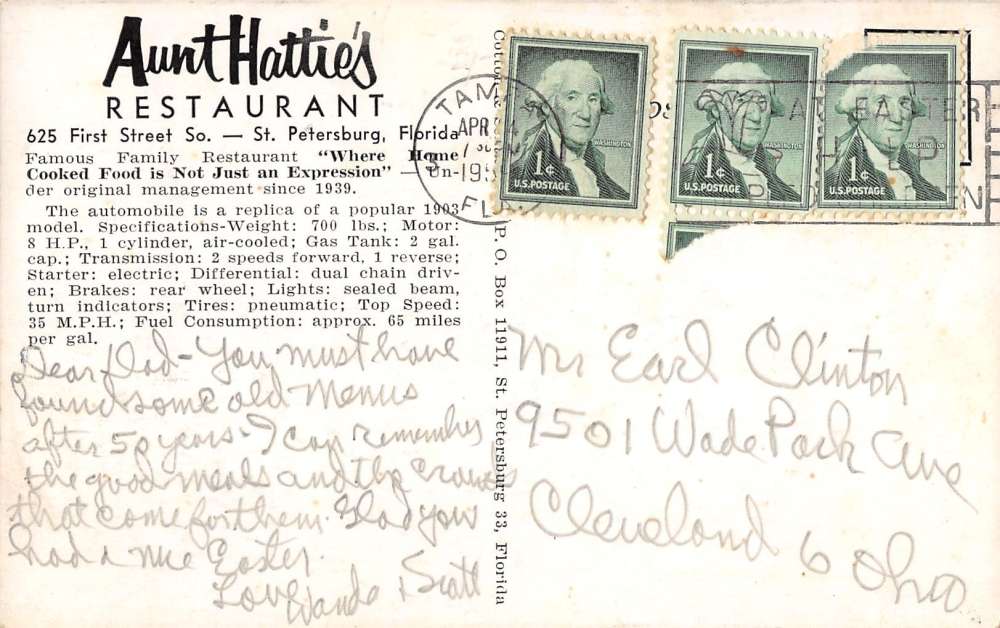 Aunt Hattie's
RESTAURANT
625 First Street So. — St. Petersburg, Florida
Famous Family Restaurant "Where Home
Cooked Food is Not Just an Expression" — Un-
der original management since 1939.
The automobile is a replica of a popular 1903
model. Specifications-Weight: 700 lbs.; Motor:
8 H.P., 1 cylinder, air-cooled; Gas Tank: 2 gal.
cap.; Transmission: 2 speeds forward, 1 reverse;
Starter: electric; Differential: dual chain driv-
en; Brakes: rear wheel; Lights: sealed beam,
turn indicators; Tires: pneumatic; Top Speed:
35 M.P.H.; Fuel Consumption: approx. 65 miles
per gal.
Dear Dad - You must have
found some old Menus
after 50 years. I can remember
the good meals and the crowds
that come for them. Glad you
had a nice Easter.
Love Wanda & Scott
P. O. Box 11911, St. Petersburg 33, Florida
TAM
APR
195
FLA
WASHINGTON
1¢
U.S. POSTAGE
WASHINGTON
1¢
U.S. POSTAGE
1¢
U.S. POSTAGE
EASTER
Mr Earl Clinton
9501 Wade Park Ave
Cleveland 6 Ohio